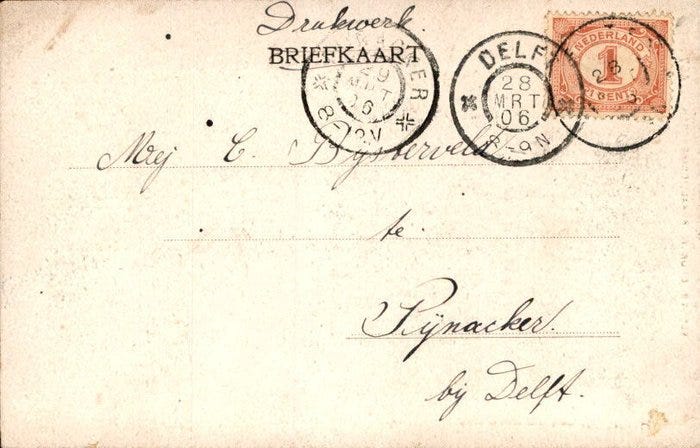 Drukwerk.
BRIEFKAART
29
MRT
06
8-12V
DELFT
28
MRT
06
8-9N
NEDERLAND
1
CENT
28
Mej C. Bijsterveld
te
Pijnacker.
bij Delft.